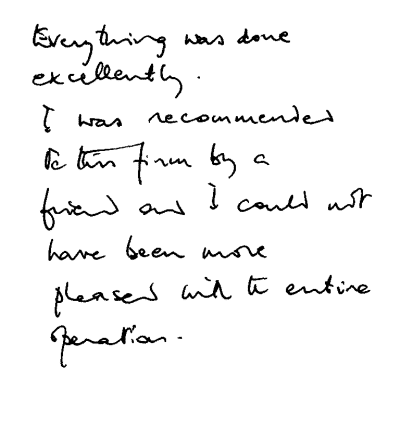 Everything was done
excellently.
I was recommended
to this firm by a
friend and I could not
have been more
pleased with the entire
operation.